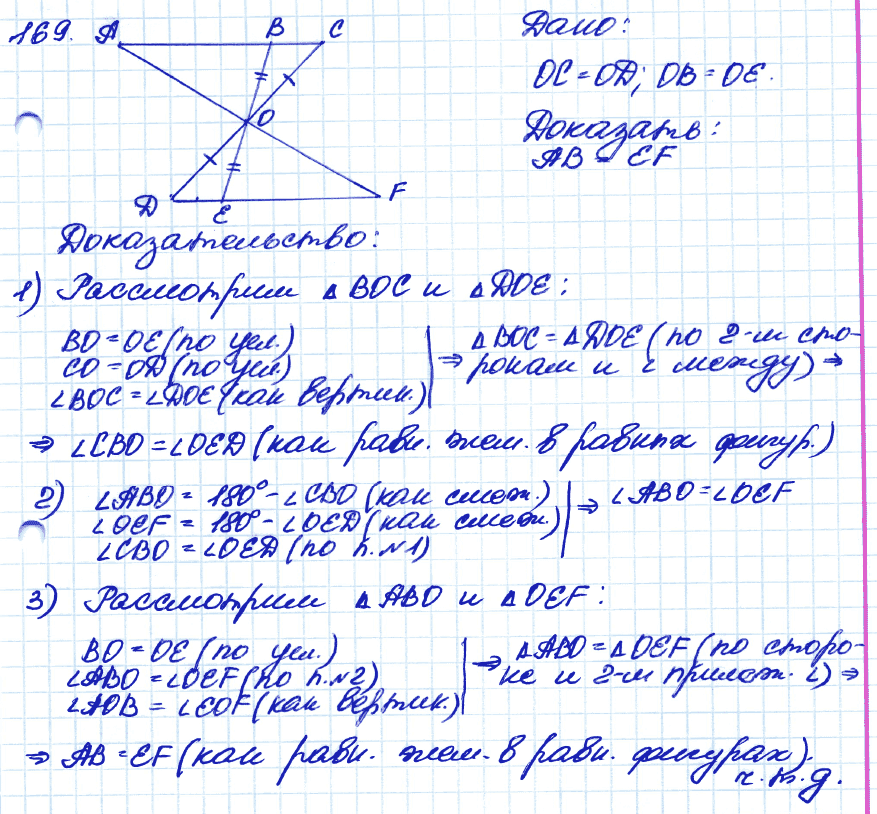 169. A B C
Дано:
OC = OD; OB = OE.
O
Доказать:
AB = EF
D E F
Доказательство:
1) Рассмотрим △BOC и △DOE:
BO = OE (по усл.)
CO = OD (по усл)
∠BOC = ∠DOE (как вертик.)
⇒ △BOC = △DOE (по 2-м сто-
ронам и ∠ между) ⇒
⇒ ∠CBO = ∠OED (как равн. элем. в равных фигур.)
2) ∠ABO = 180° - ∠CBO (как смеж.)
∠OEF = 180° - ∠OED (как смеж.)
∠CBO = ∠OED (по п.№1)
⇒ ∠ABO = ∠OEF
3) Рассмотрим △ABO и △OEF:
BO = OE (по усл.)
∠ABO = ∠OEF (по п.№2)
∠AOB = ∠EOF (как вертик.)
⇒ △ABO = △OEF (по сторо-
не и 2-м прилеж. ∠) ⇒
⇒ AB = EF (как равн. элем. в равн. фигурах).
ч.т.д.